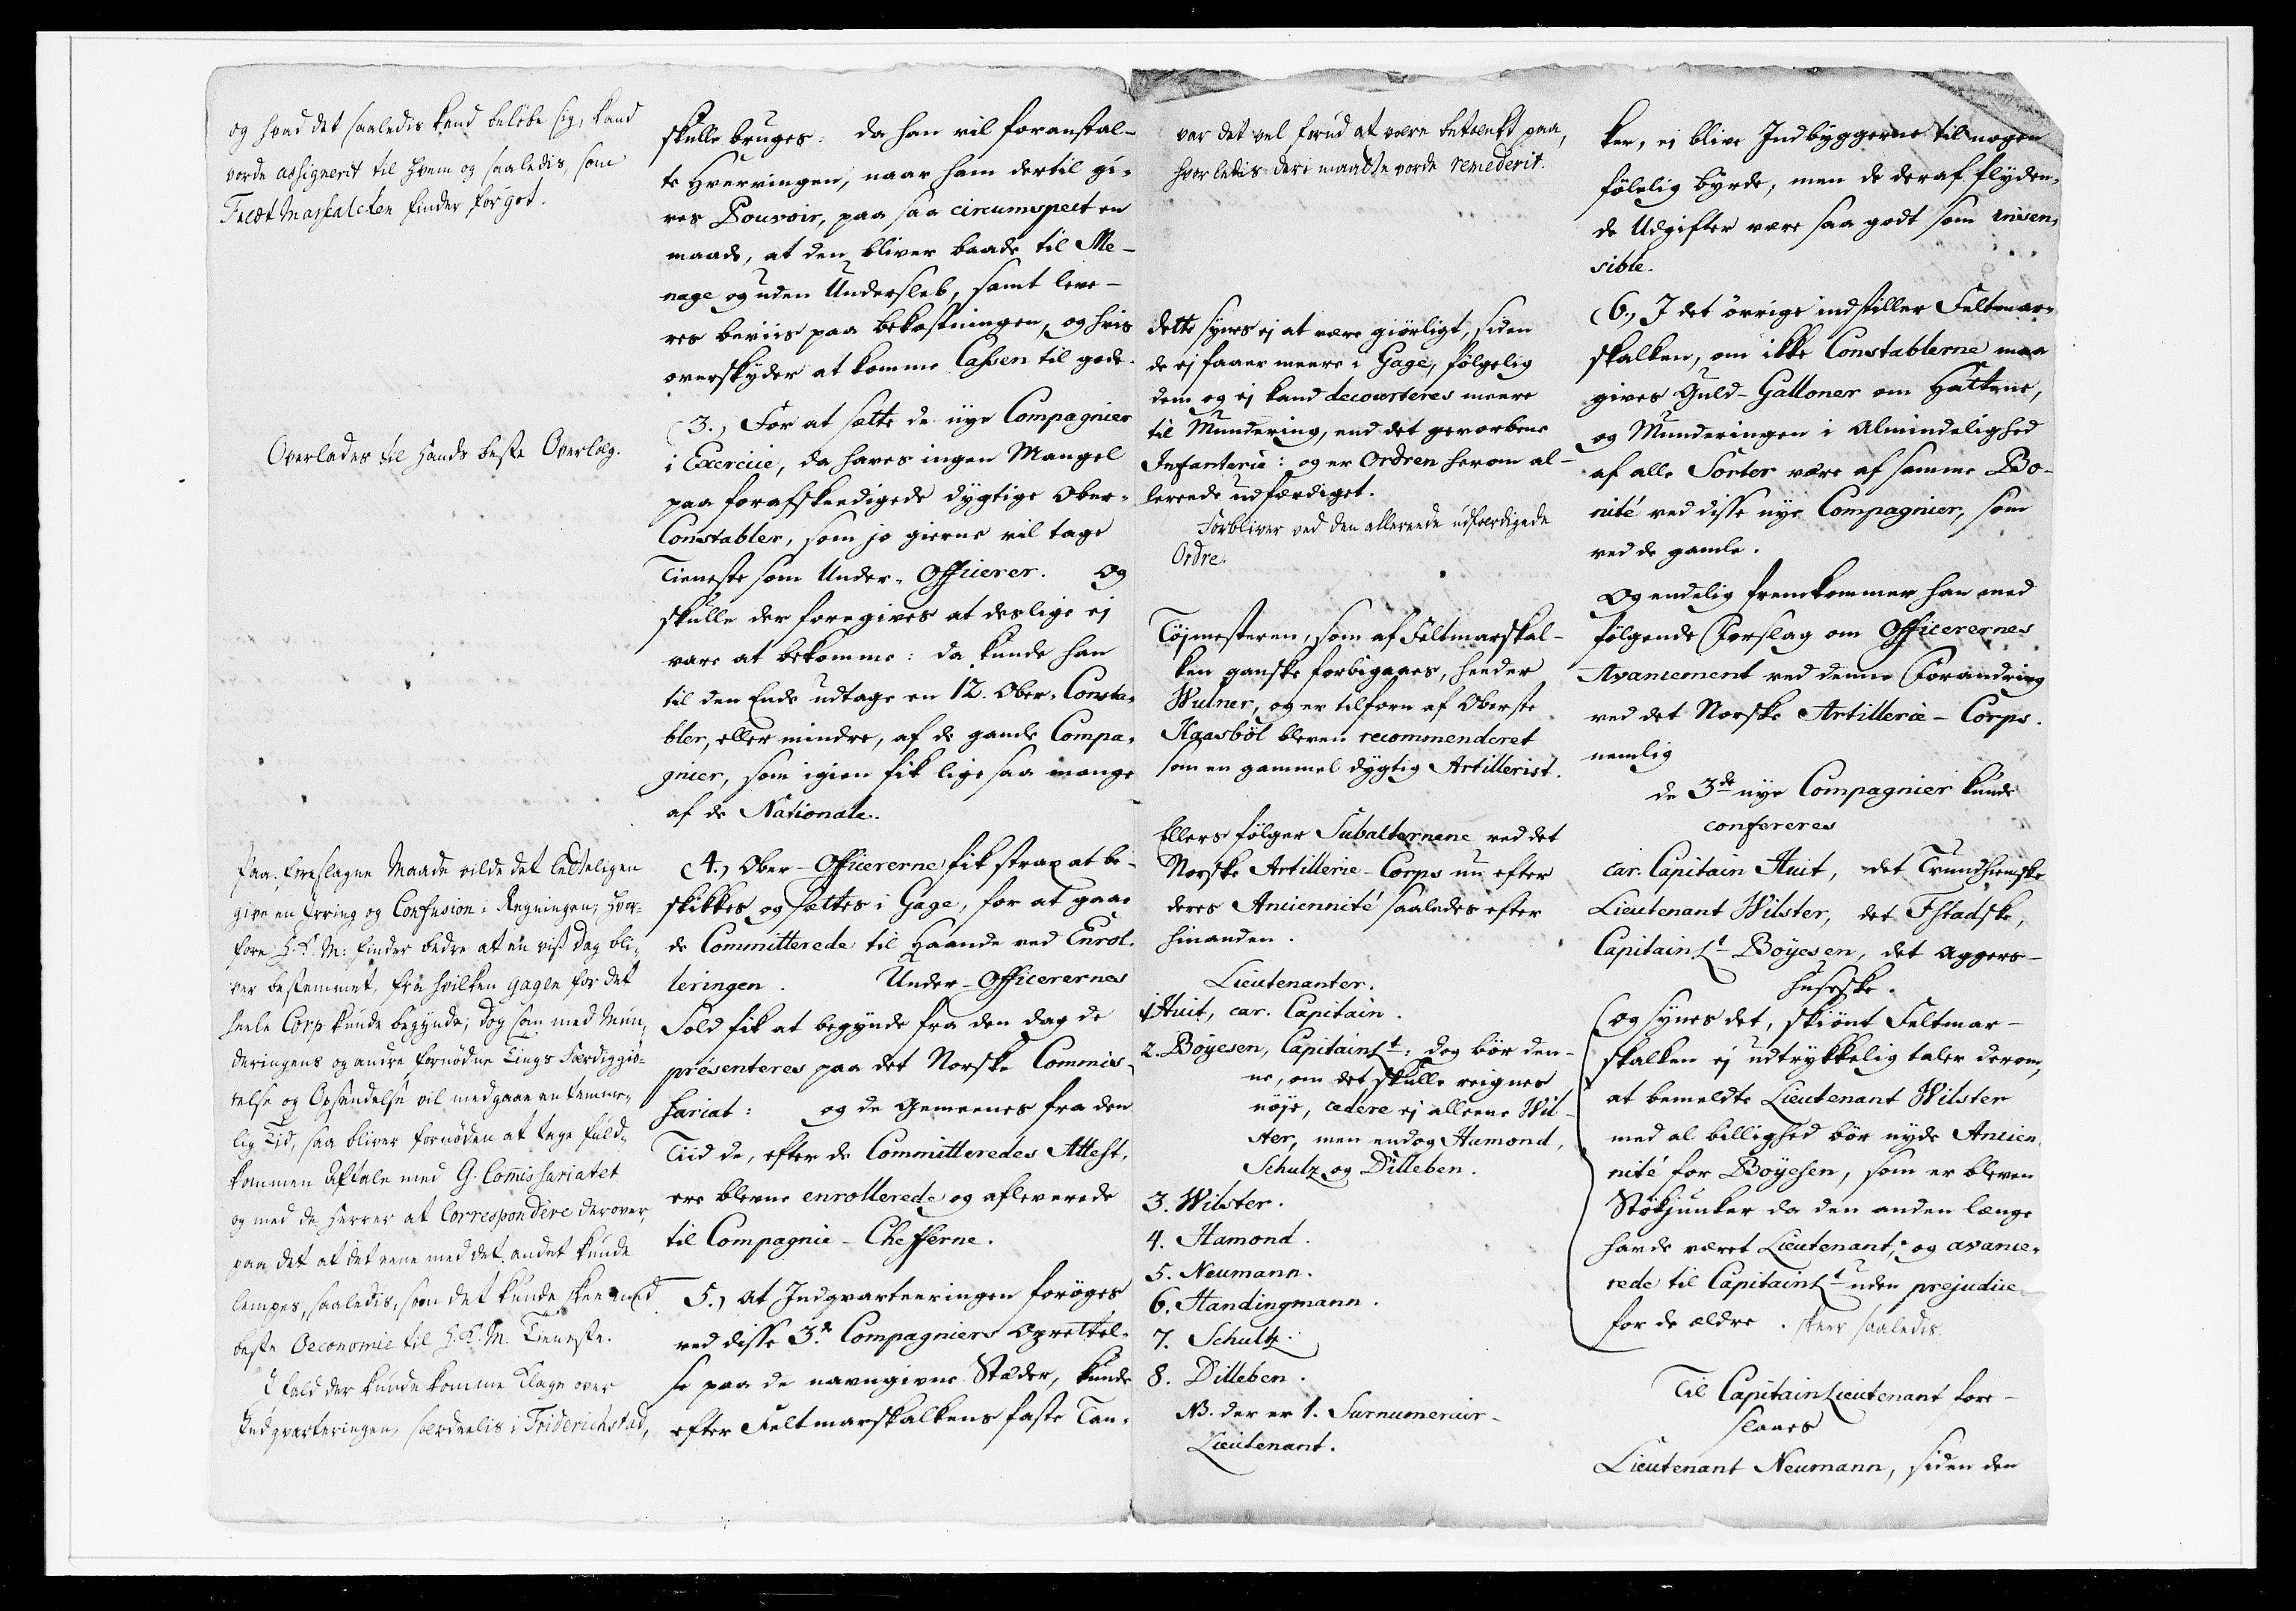 og hvad det saaledis kand belöbe sig, kand
vorde assignerit til hvem og saaledis, som
Feldt Maskalcken finder for got.
Overlades til hands beste Overlæg.
Paa foreslagne Maade vilde det ledteligen
give en Erring og Confusion i Regningen; hvor-
fore H. K. M: finder bedre at en viss Dag bli-
ver bestemmet, fra hvilken gagen for det
heele Corp kunde begynde; dog som med Mun-
deringens og andre fornødne Tings Færdiggiö-
relse og Opsendelse vil medgaae en temme-
lig Tid, saa bliver fornøden at tage fuld-
kommen Aftale med G. Commissariatet
og med de Herrer at Correspondere derover,
paa det at det eene med det andet kunde
lempes, saaledis, som det kunde skee med
beste Oeconomie til H. K. M. Tieneste.
I fald der kunde komme Klage over
Indqvarteringen, særdeelis i Friderichstad,
skulle bruges: da han vil foranstal-
te Hverringen, naar ham dertil gi-
ves Pouvoir, paa saa circumspect en
maade, at den bliver baade til Me-
nage og uden Underslæb, samt leve-
res beviis paa bekostningen, og hvis
overskyder at komme Cassen til gode.
3.) For at sætte de nye Compagnier
i Exercice, da haves ingen Mangel
paa forafskeedigede dygtige Ober-
Constabler, som jo gierne vil tage
Tieneste som Under-Officerer. Og
skulle der foregives at deslige ej
vare at bekomme: da kunde han
til den Ende udtage en 12. Ober-Consta-
bler, eller mindre, af de gamle Compa-
gnier, som igien fik lige saa mange
af de Nationale.
4.) Ober-Officererne fik strax at be-
skikkes og sættes i Gage, for at gaae
de Committerede til Haande ved Enrol-
leringen. Under-Officerernes
Sold fik at begynde fra den dag de
præsenteres paa det Norske Commis-
sariat: og de Gemeenes fra den
Tiid de, efter de Committeredes Attest,
ere blevne enrollerede og afleverede
til Compagnie-Chefferne.
5.) At Indqvarteeringen forøges
ved disse 3de Compagniers Oprettel-
se paa de navngivne Stæder, kunde
efter Feltmarskalkens faste Tan-
var det vel forud at være betænkt paa,
hvorledis deri maatte vorde remederit.
Dette synes ej at være giörligt, siden
de ej faaer meere i Gage, følgelig
dem og ej kand decourteres meere
til Mundering, end det gevorbene
Infanterie: og er Ordren herom al-
lereede udfærdiget.
Forbliver ved den allereede udfærdigede
Ordre.
Töjmesteren, som af Feltmarskal-
ken ganske forbigaaes, heeder
Wulner, og er tilforn af Oberste
Kaasböl bleven recommenderet
som en gammel dygtig Artillerist.
Ellers følger Subalternene ved det
Norske Artillerie-Corps nu efter
deres Anciennité saaledes efter
hinanden.
Lieutenanter.
1. Huit, car. Capitain.
2. Böyesen, CapitainLt: dog bör den-
ne, om det skulle reignes
nöje, cedere ej alleene Wil-
ster, men endog Hamond,
Schulz og Dilleben.
3. Wilster.
4. Hamond.
5. Neumann.
6. Handingmann.
7. Schultz.
8. Dilleben.
NB. der er 1. Surnumerair-
Lieutenant.
ker, ej blive Indbyggerne til nogen
følelig byrde, men de deraf flyden-
de Udgifter være saa godt som insen-
sible.
6.) I det övrige indstiller Feltmar-
skalken, om ikke Constablerne maa
gives Guld-Galloner om Hattene,
og Munderingen i Almindelighed
af alle Sorter være af samme Bo-
nité ved disse nye Compagnier, som
ved de gamle.
Og endelig fremkommer han med
følgende Forslag om Officerernes
Avancement ved denne Forandring
ved det Norske Artillerie-Corps.
nemlig
de 3de nye Compagnier kunde
confereres
car. Capitain Huit, det Trundhiemske
Lieutenant Wilster, det Fstadske,
CapitainLt Böyesen, det Aggers-
huseske.
(og synes det, skiönt Feltmar-
skalken ej udtrykkelig taler derom,
at bemeldte Lieutenant Wilster
med al billighed bör nyde Ancien-
nité for Böyesen, som er bleven
Stökjunker da den anden længe
havde været Lieutenant; og avance-
rede til CapitainLt uden prejudice
for de ældre. skeer saaledis.
Til CapitainLieutenant fore-
slaaes
Lieutenant Neumann, siden den